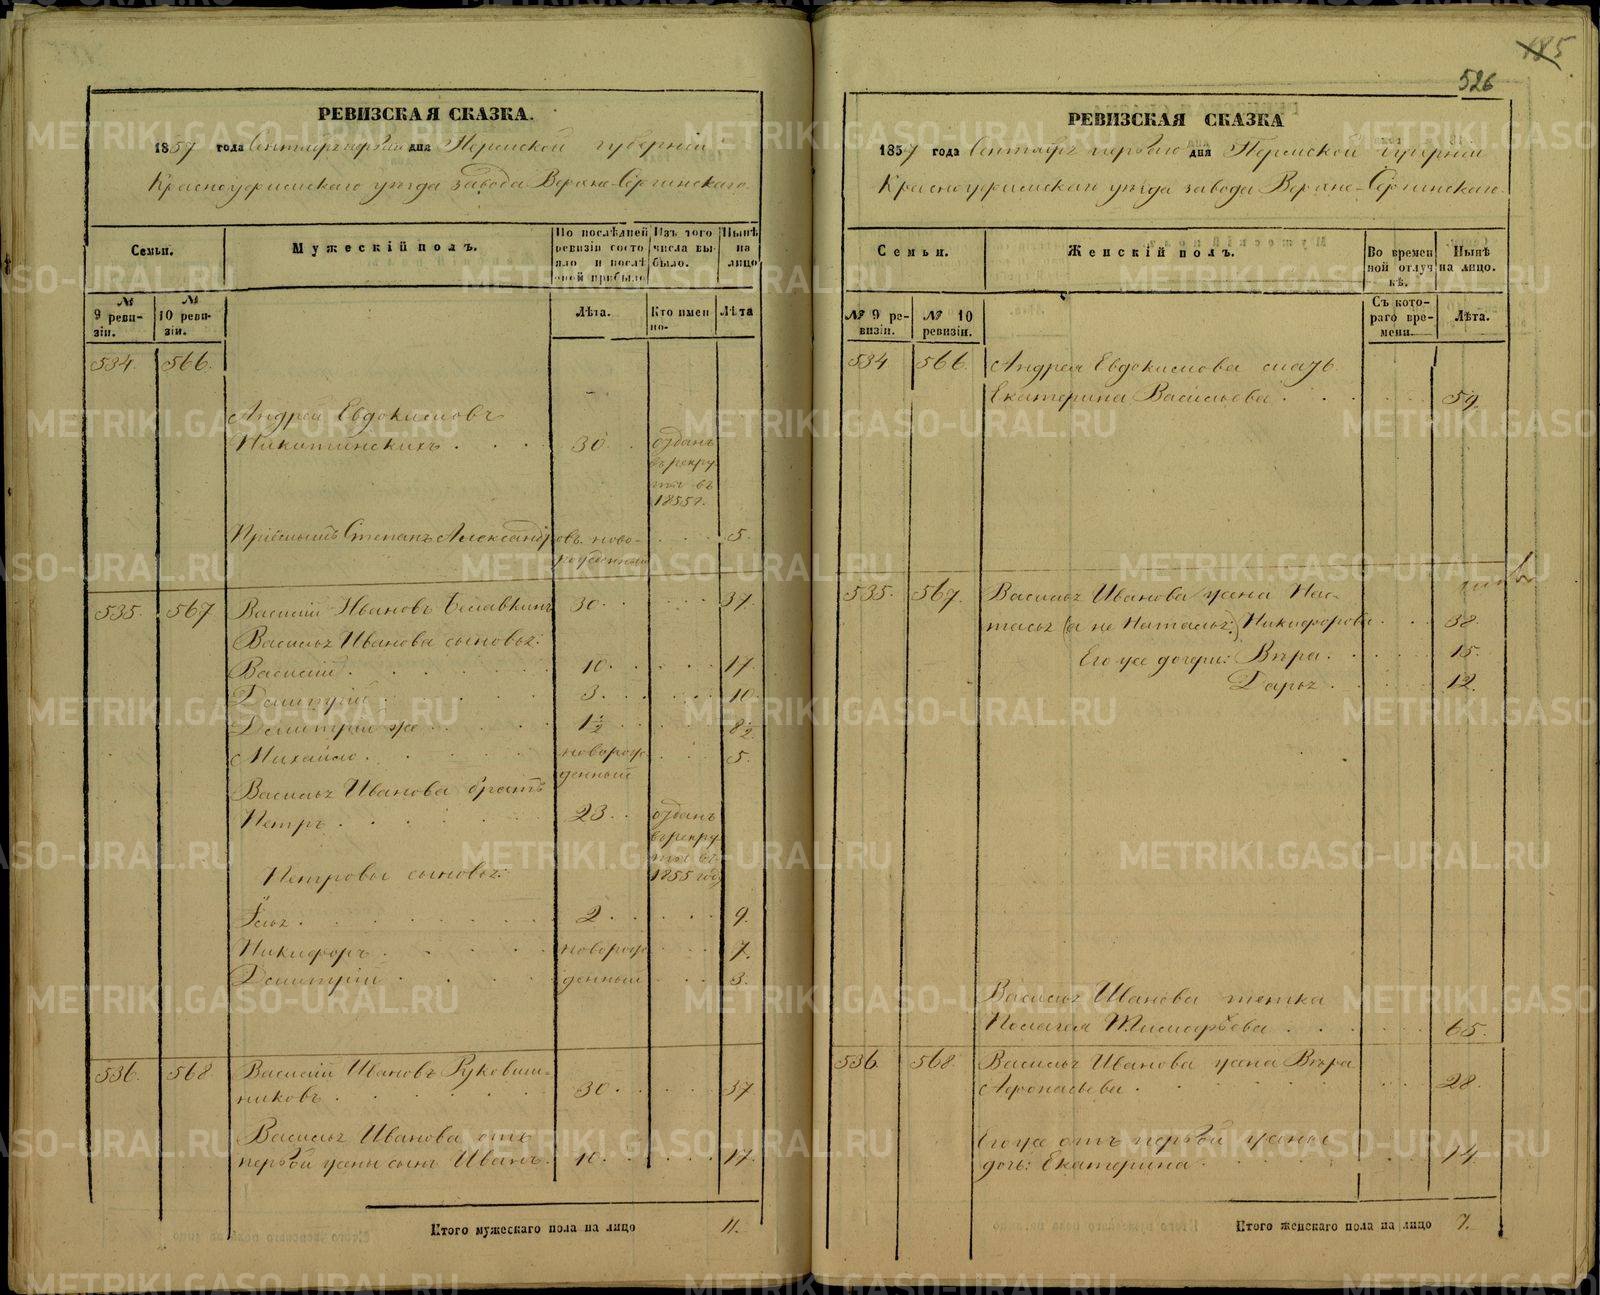 РЕВИЗСКАЯ СКАЗКА.
1857 года Сентября первая дня Пермской губерніи
Красноуфимскаго уѣзда завода Верхне-Сергинскаго
Семьи.
Мужескій полъ.
По послѣдней ревизіи состояло и послѣ оной прибыло
Изъ того числа выбыло.
Нынѣ на лицо
№ 9 ревизіи.
№ 10 ревизіи.
Лѣта.
Кто именно.
Лѣта
534. 566.
Андрей Евдокимовъ
Никитинскихъ 30 отданъ
въ рекру
ты въ
1855 г.
Пріемышъ Степанъ Александровъ ново- 5.
рожденный
535. 567. Василій Ивановъ Булавкинъ 30 37.
Василья Иванова сыновья:
Василій 10 17
Дмитрій 3 10
Дмитрій же 1½ 8½
Михайло новорож 5.
денный
Василья Иванова братъ
Петръ 23 отданъ
въ рекру
ты въ
1855 году
Петровы сыновья:
Илья 2 9.
Никифоръ новорож 7.
Дмитрій денный 3.
536. 568 Василій Ивановъ Рукавиш-
никовъ 30 37
Василья Иванова отъ
первой жены сынъ Иванъ 10 17.
Итого мужескаго пола на лицо 11.
185
526
РЕВИЗСКАЯ СКАЗКА
1857 года Сентября перваго дня Пермской губерніи
Красноуфимскаго уѣзда завода Верхне-Сергинскаго
Семьи.
Женскій полъ.
Во временной отлучкѣ.
Нынѣ на лицо.
№ 9 ревизіи.
№ 10 ревизіи.
Съ котораго времени.
Лѣта.
534 566 Андрея Евдокимова мать
Екатерина Васильева 59.
535. 567. Василья Иванова жена Нас-
тасья (а не Наталья:) Никифорова 38.
Его же дочери: Вѣра 15.
Дарья 12.
Василья Иванова тетка
Пелагея Тимофѣева 65.
536. 568. Василья Иванова жена Вѣра
Афонасьева 28.
Его же отъ первой жены
дочь: Екатерина 14.
Итого женскаго пола на лицо 7.
METRIKI.GASO-URAL.RU